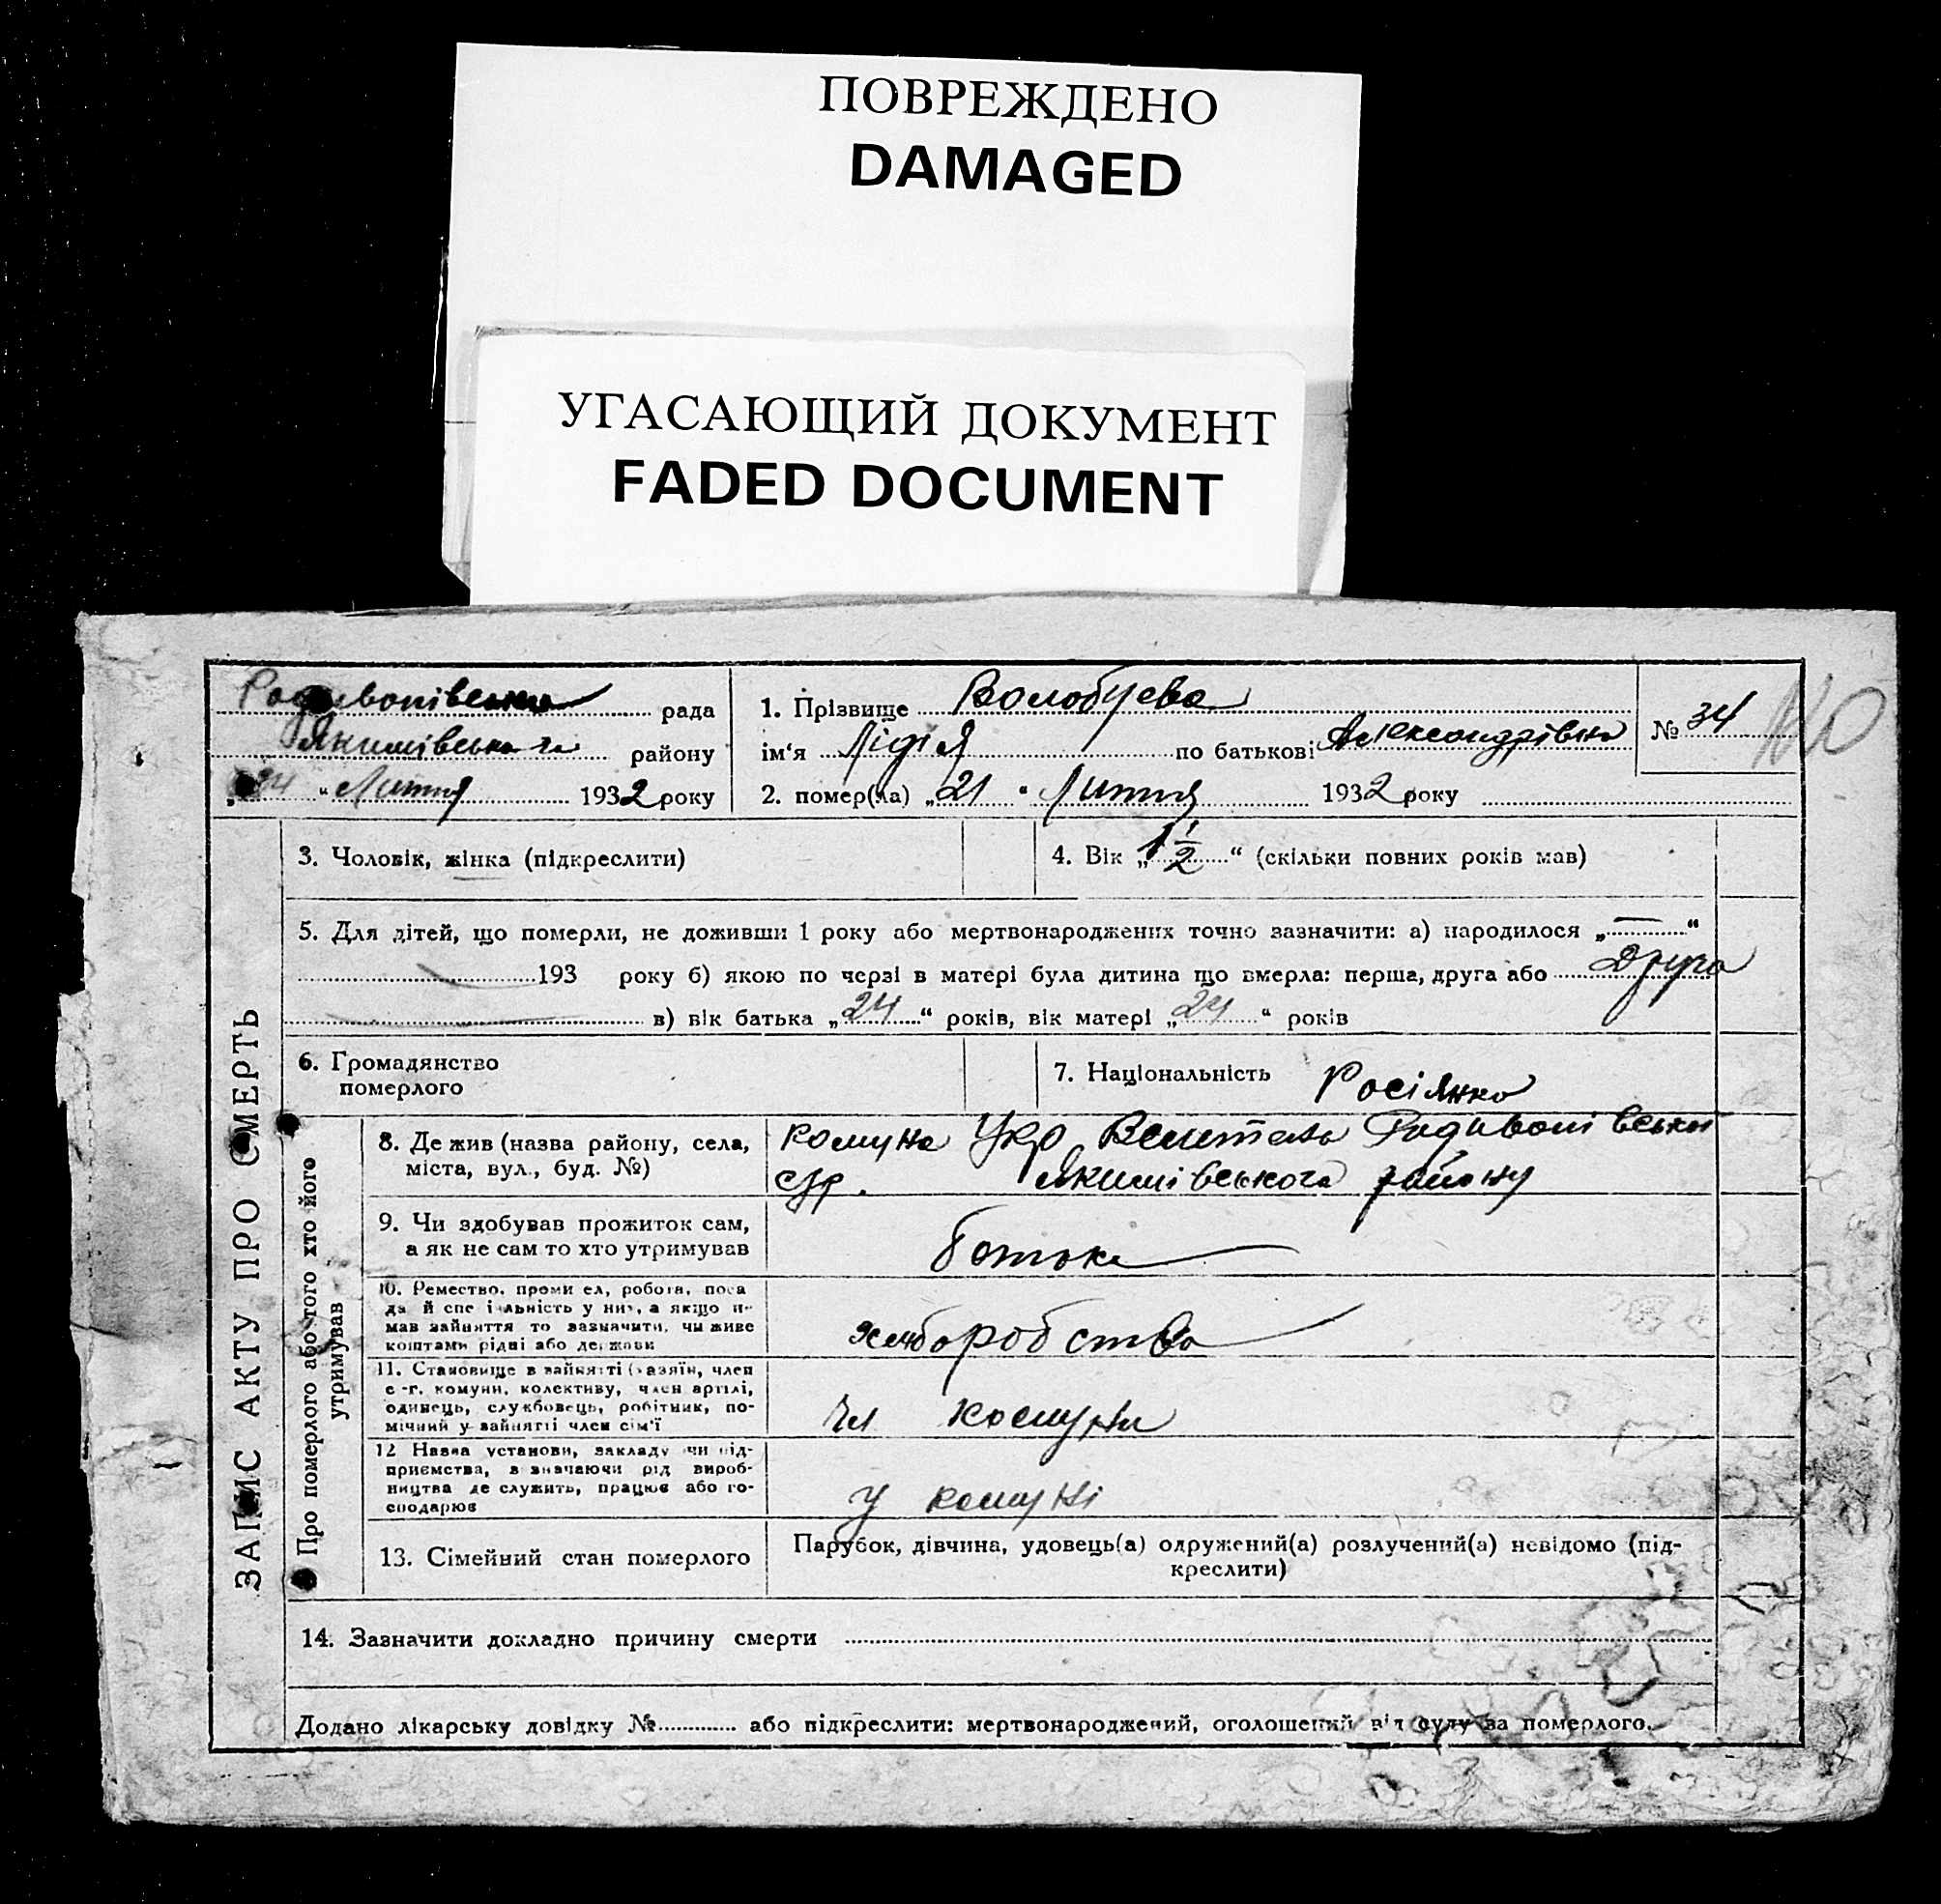 ПОВРЕЖДЕНО
DAMAGED
УГАСАЮЩИЙ ДОКУМЕНТ
FADED DOCUMENT
Радивонівська рада
Якимівського району
"24" Липня 1932 року
1. Прізвище Волобуева
ім'я Лідія по батькові Александрівна
№ 34
2. помер(ла) „21" Липня 1932 року
ЗАПИС АКТУ ПРО СМЕРТЬ
3. Чоловік, жінка (підкреслити)
4. Вік „1 1/2" (скільки повних років мав)
5. Для дітей, що померли, не доживши 1 року або мертвонароджених точно зазначити: а) народилося „—"
193 року б) якою по черзі в матері була дитина що вмерла: перша, друга або друга
в) вік батька „24" років, вік матері „24" років
6. Громадянство
померлого
7. Національність Росіянка
Про померлого або того хто його
утримував
8. Де жив (назва району, села,
міста, вул., буд. №)
комуна Укр Радивонівської
с/р. Якимівського району
9. Чи здобував прожиток сам,
а як не сам то хто утримував
батько
10. Ремество, проми ел, робота, поса
да й спе і альність у них, а якщо н-
мав зайняття то зазначити, чи живе
коштами рідні або держави
хліборобство
11. Становище в зайнятті (хазяїн, член
с-г. комуни, колективу, член артілі,
одинець, службовець, робітник, по-
мічний у зайнятті член сім'ї
чл комуни
12 Назва установи, закладу чи під-
приємства, в значаючи рід вироб-
ництва де служить, працює або го-
сподарює
у комуні
13. Сімейний стан померлого
Парубок, дівчина, удовець(а) одружений(а) розлучений(а) невідомо (під-
креслити)
14. Зазначити докладно причину смерти
Додано лікарську довідку № або підкреслити: мертвонароджений, оголошений від суду за померлого.